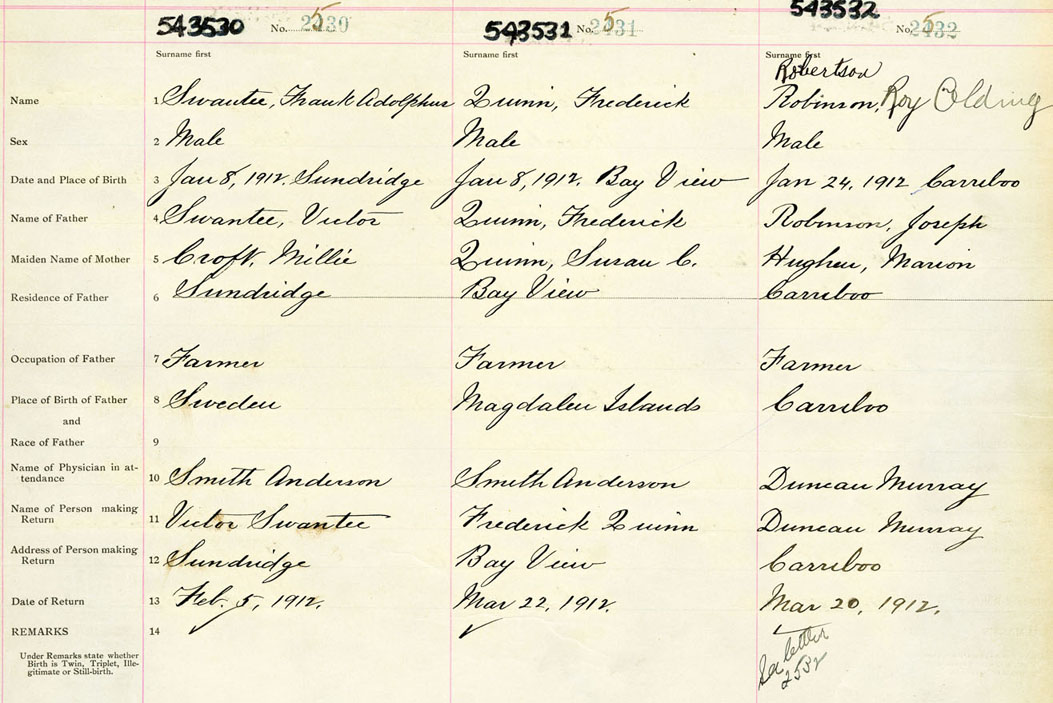 543530 No. 2430 5 543531 No. 2431 5 543532 No. 2432 5
Surname first Surname first Surname first
Robertson
Name 1 Swantee, Frank Adolphus Quinn, Frederick Robinson, Roy Olding
Sex 2 Male Male Male
Date and Place of Birth 3 Jan 8, 1912. Sundridge Jan 8, 1912. Bay View Jan 24, 1912 Carriboo
Name of Father 4 Swantee, Victor Quinn, Frederick Robinson, Joseph
Maiden Name of Mother 5 Croft, Millie Quinn, Susan C. Hughen, Marion
Residence of Father 6 Sundridge Bay View Carriboo
Occupation of Father 7 Farmer Farmer Farmer
Place of Birth of Father 8 Sweden Magdalen Islands Carriboo
and
Race of Father 9
Name of Physician in at-
tendance 10 Smith Anderson Smith Anderson Duncan Murray
Name of Person making
Return 11 Victor Swantee Frederick Quinn Duncan Murray
Address of Person making
Return 12 Sundridge Bay View Carriboo
Date of Return 13 Feb. 5, 1912. Mar 22, 1912. Mar 20, 1912.
REMARKS 14
See letter
2532
Under Remarks state whether
Birth is Twin, Triplet, Ille-
gitimate or Still-birth.